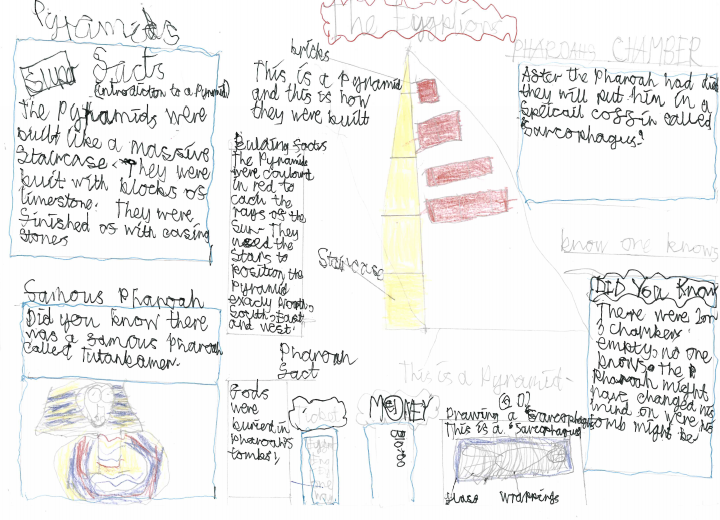 The Egyptions
Pyrameds
Super Facts
(introduction to a Pyramid)
The Pyramids were
built like a massive
Staircase. They were
built with blocks of
limestone. They were
finished of with casing
stones
bricks
This is a Pyramid
and this is how
they were built
Bulding facts
The Pyramids
were coulourd
in red to
cach the
rays of the
Sun. They
used the
Stars to
Position the
Pyramid
exacly North,
South, East
and West.
Staircase
PHAROAHS CHAMBER
After the Pharoah had died
they will put him in a
Speicail coffin called
Sarcophagus!
know one knows
DID YOU Know
There were 2 or
3 chambers
empty, no one
knows. the
Pharoah might
have changed his
mind on were his
tomb might be
Famous Pharoah
Did you know there
was a famous pharoah
called Tutankamen.
Pharoah
fact
Gods
were
buried in
Pharoah's
tombs!
MONEY
This is a Pyramid
Drawing a Sarcophagus
This is a Sarcophagus
Wrappings